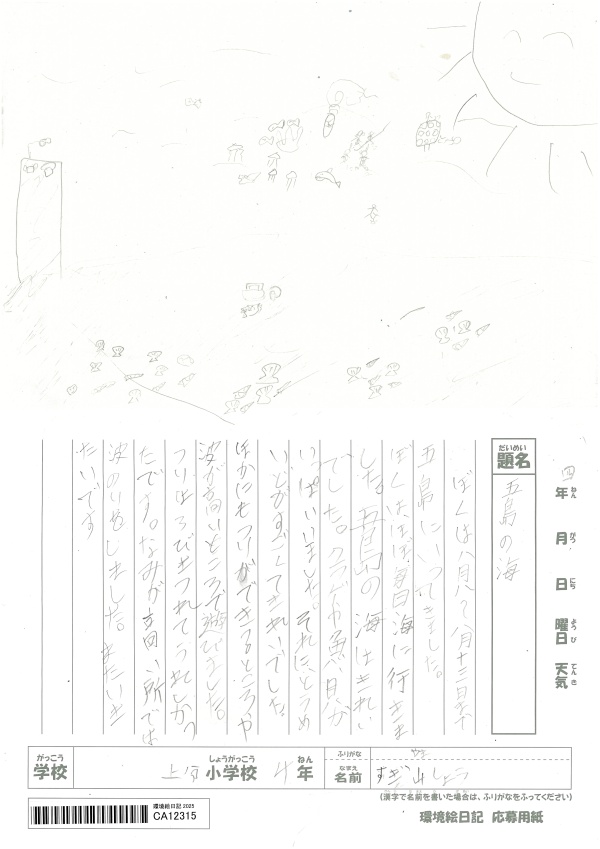 四
年 ねん
月 がつ
日 にち
曜日 ようび
天気 てんき
題名 だいめい
五島の海
ぼくは八月八〜八月十三日まで
五島にいってきました。
ぼくはほぼ毎日海に行きま
した。五島の海はきれい
でした。クラゲや魚、貝が
いっぱいいました。それに、とうめ
いどがすごくてきれいでした。
ほかにもつりができるところや
波が高いところで遊びました。
つりは
たです。なみが高い所では
波のりをしました。またいき
たいです
がっこう
学校
しょうがっこう
小学校
4年 ねん
ふりがな
なまえ
名前
やま
すぎ山しょう
(漢字で名前を書いた場合は、ふりがなをふってください)
環境絵日記 2025
CA12315
環境絵日記 応募用紙